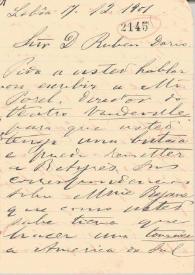 Lisbôa 17. 12. 1901
2145
Snr D. Ruben Dario.
Pido a usted hablar
ou escribir a Mr
Porel, director do
teatro Vaudeville
para que usted
tenga una butaca
e pueda remetter
a
sus
sobre
que como usted
sabe tiene que
hacer una tournée
a America do Sul